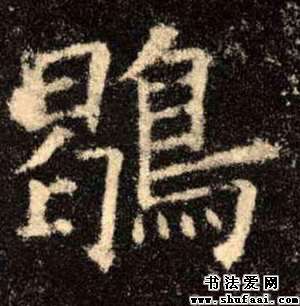 鶡
书法爱网
www.shufaai.com